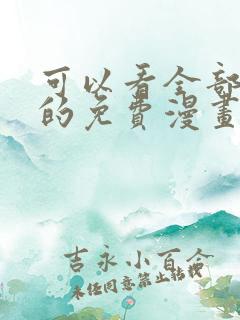 可以看全部
的免費漫畫
吉永小百合
未经同意禁止转载